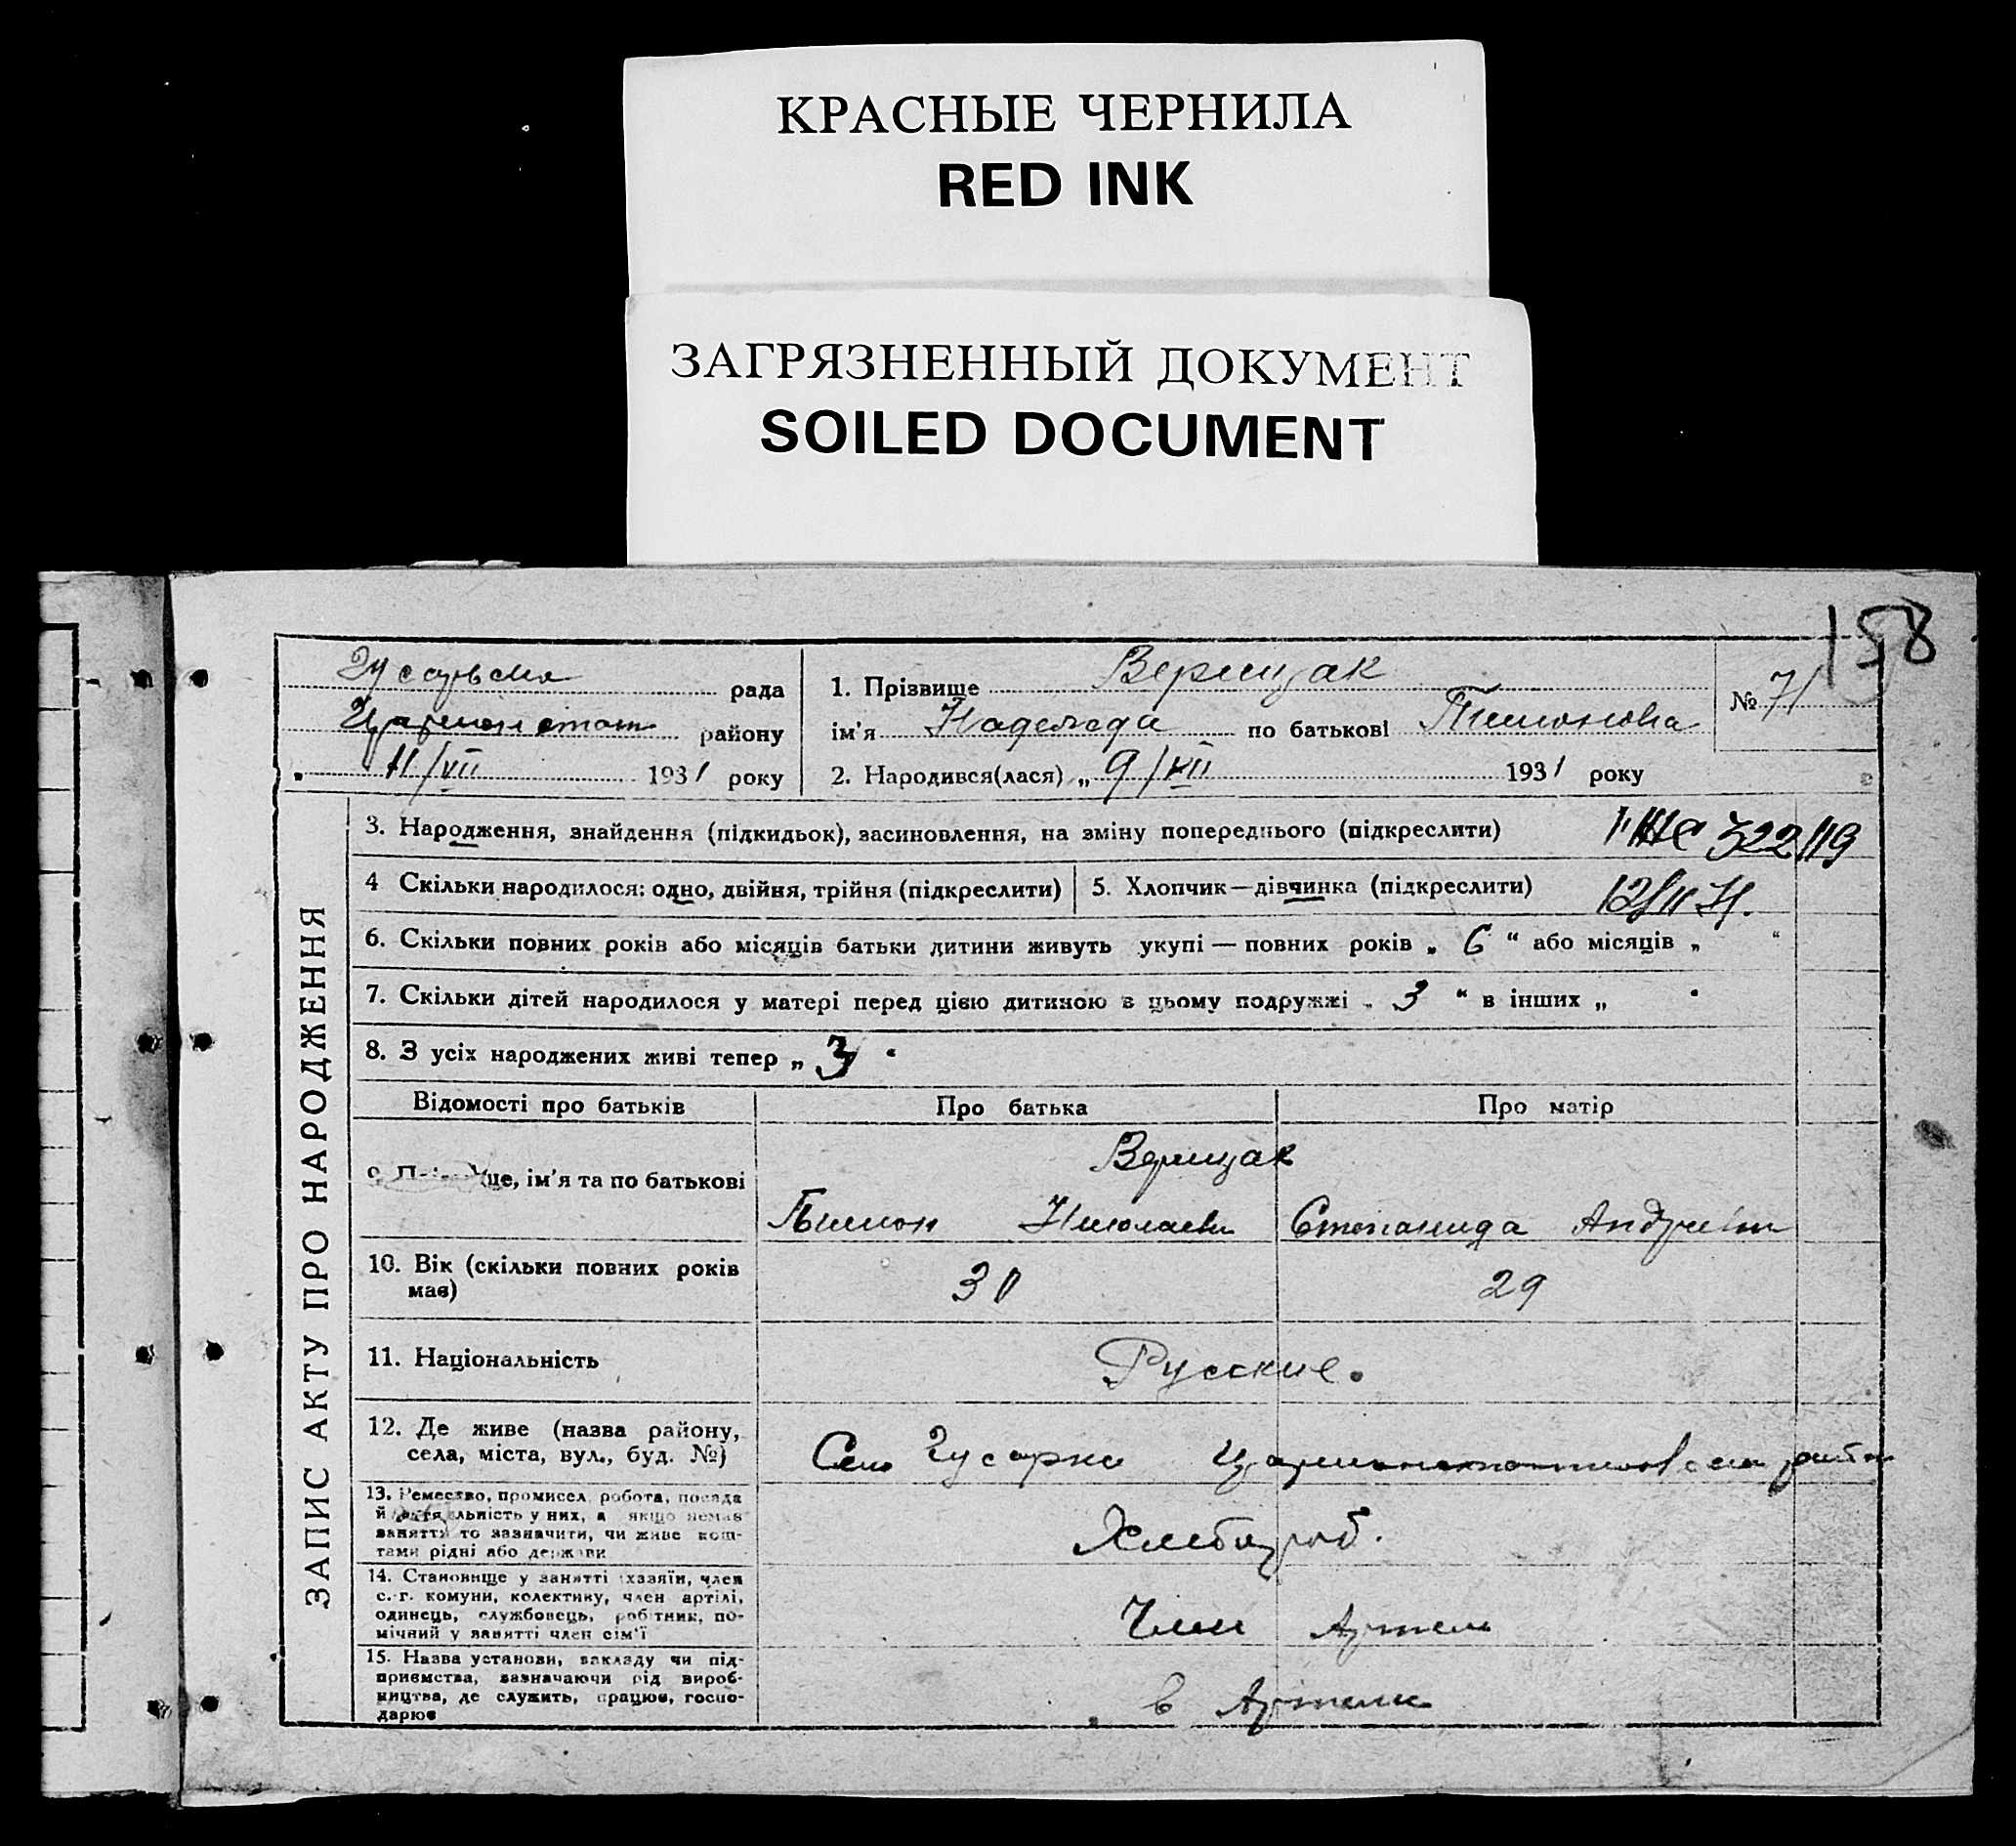 КРАСНЫЕ ЧЕРНИЛА
RED INK
ЗАГРЯЗНЕННЫЙ ДОКУМЕНТ
SOILED DOCUMENT
158
рада
району
11/VII 1931 року
1. Прізвище Верещак
ім'я Надежда по батькові Тимоновна
№ 71
2. Народився(лася) „ 9/VII 1931 року
ЗАПИС АКТУ ПРО НАРОДЖЕННЯ
3. Народження, знайдення (підкидьок), засиновлення, на зміну попереднього (підкреслити)
322119
4 Скільки народилося: одно, двійня, трійня (підкреслити)
5. Хлопчик—дівчинка (підкреслити)
6. Скільки повних років або місяців батьки дитини живуть укупі — повних років „ 6 “ або місяців „ “
7. Скільки дітей народилося у матері перед цією дитиною в цьому подружжі „ 3 “ в інших „ “
8. З усіх народжених живі тепер „ 3 “
Відомості про батьків
Про батька
Про матір
це, ім'я та по батькові
Верещак
Тимон Николаевич
Степанида Андреевна
10. Вік (скільки повних років
має)
30
29
11. Національність
Русские.
12. Де живе (назва району,
села, міста, вул., буд. №)
Село Гусарка
13. Ремество, промисел, робота, посада
й діяльність у них, а якщо немає
заняття то зазначити, чи живе кош-
тами рідні або держави
Хлебороб.
14. Становище у занятті (хазяїн, член
с.-г. комуни, колективу, член артілі,
одинець, службовець, робітник, по-
мічний у занятті член сім'ї
Член Артели
15. Назва установи, закладу чи під-
приємства, зазначаючи рід вироб-
ництва, де служить, працює, госпо-
дарює
в Артели